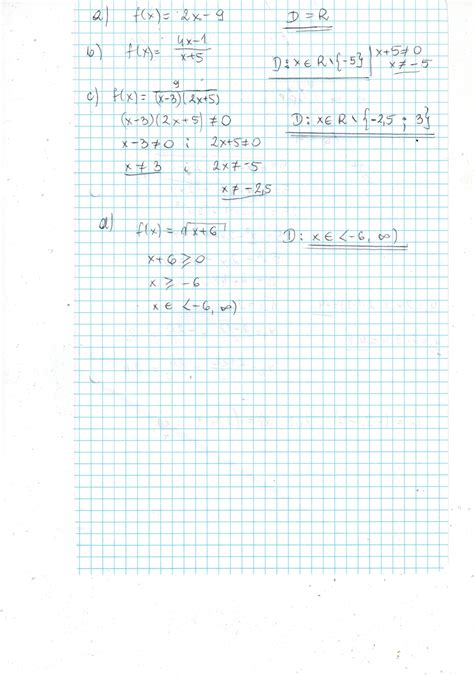 a) f(x) = 2x - 9 D = R
b) f(x) = 4x-1 / x+5 D: x ∈ R \ {-5} | x+5 ≠ 0
x ≠ -5
c) f(x) = 9 / (x-3)(2x+5)
(x-3)(2x+5) ≠ 0 D: x ∈ R \ {-2,5 ; 3}
x-3 ≠ 0 i 2x+5 ≠ 0
x ≠ 3 i 2x ≠ -5
x ≠ -2,5
d) f(x) = √x+6 D: x ∈ <-6, ∞)
x+6 ⩾ 0
x ⩾ -6
x ∈ <-6, ∞)